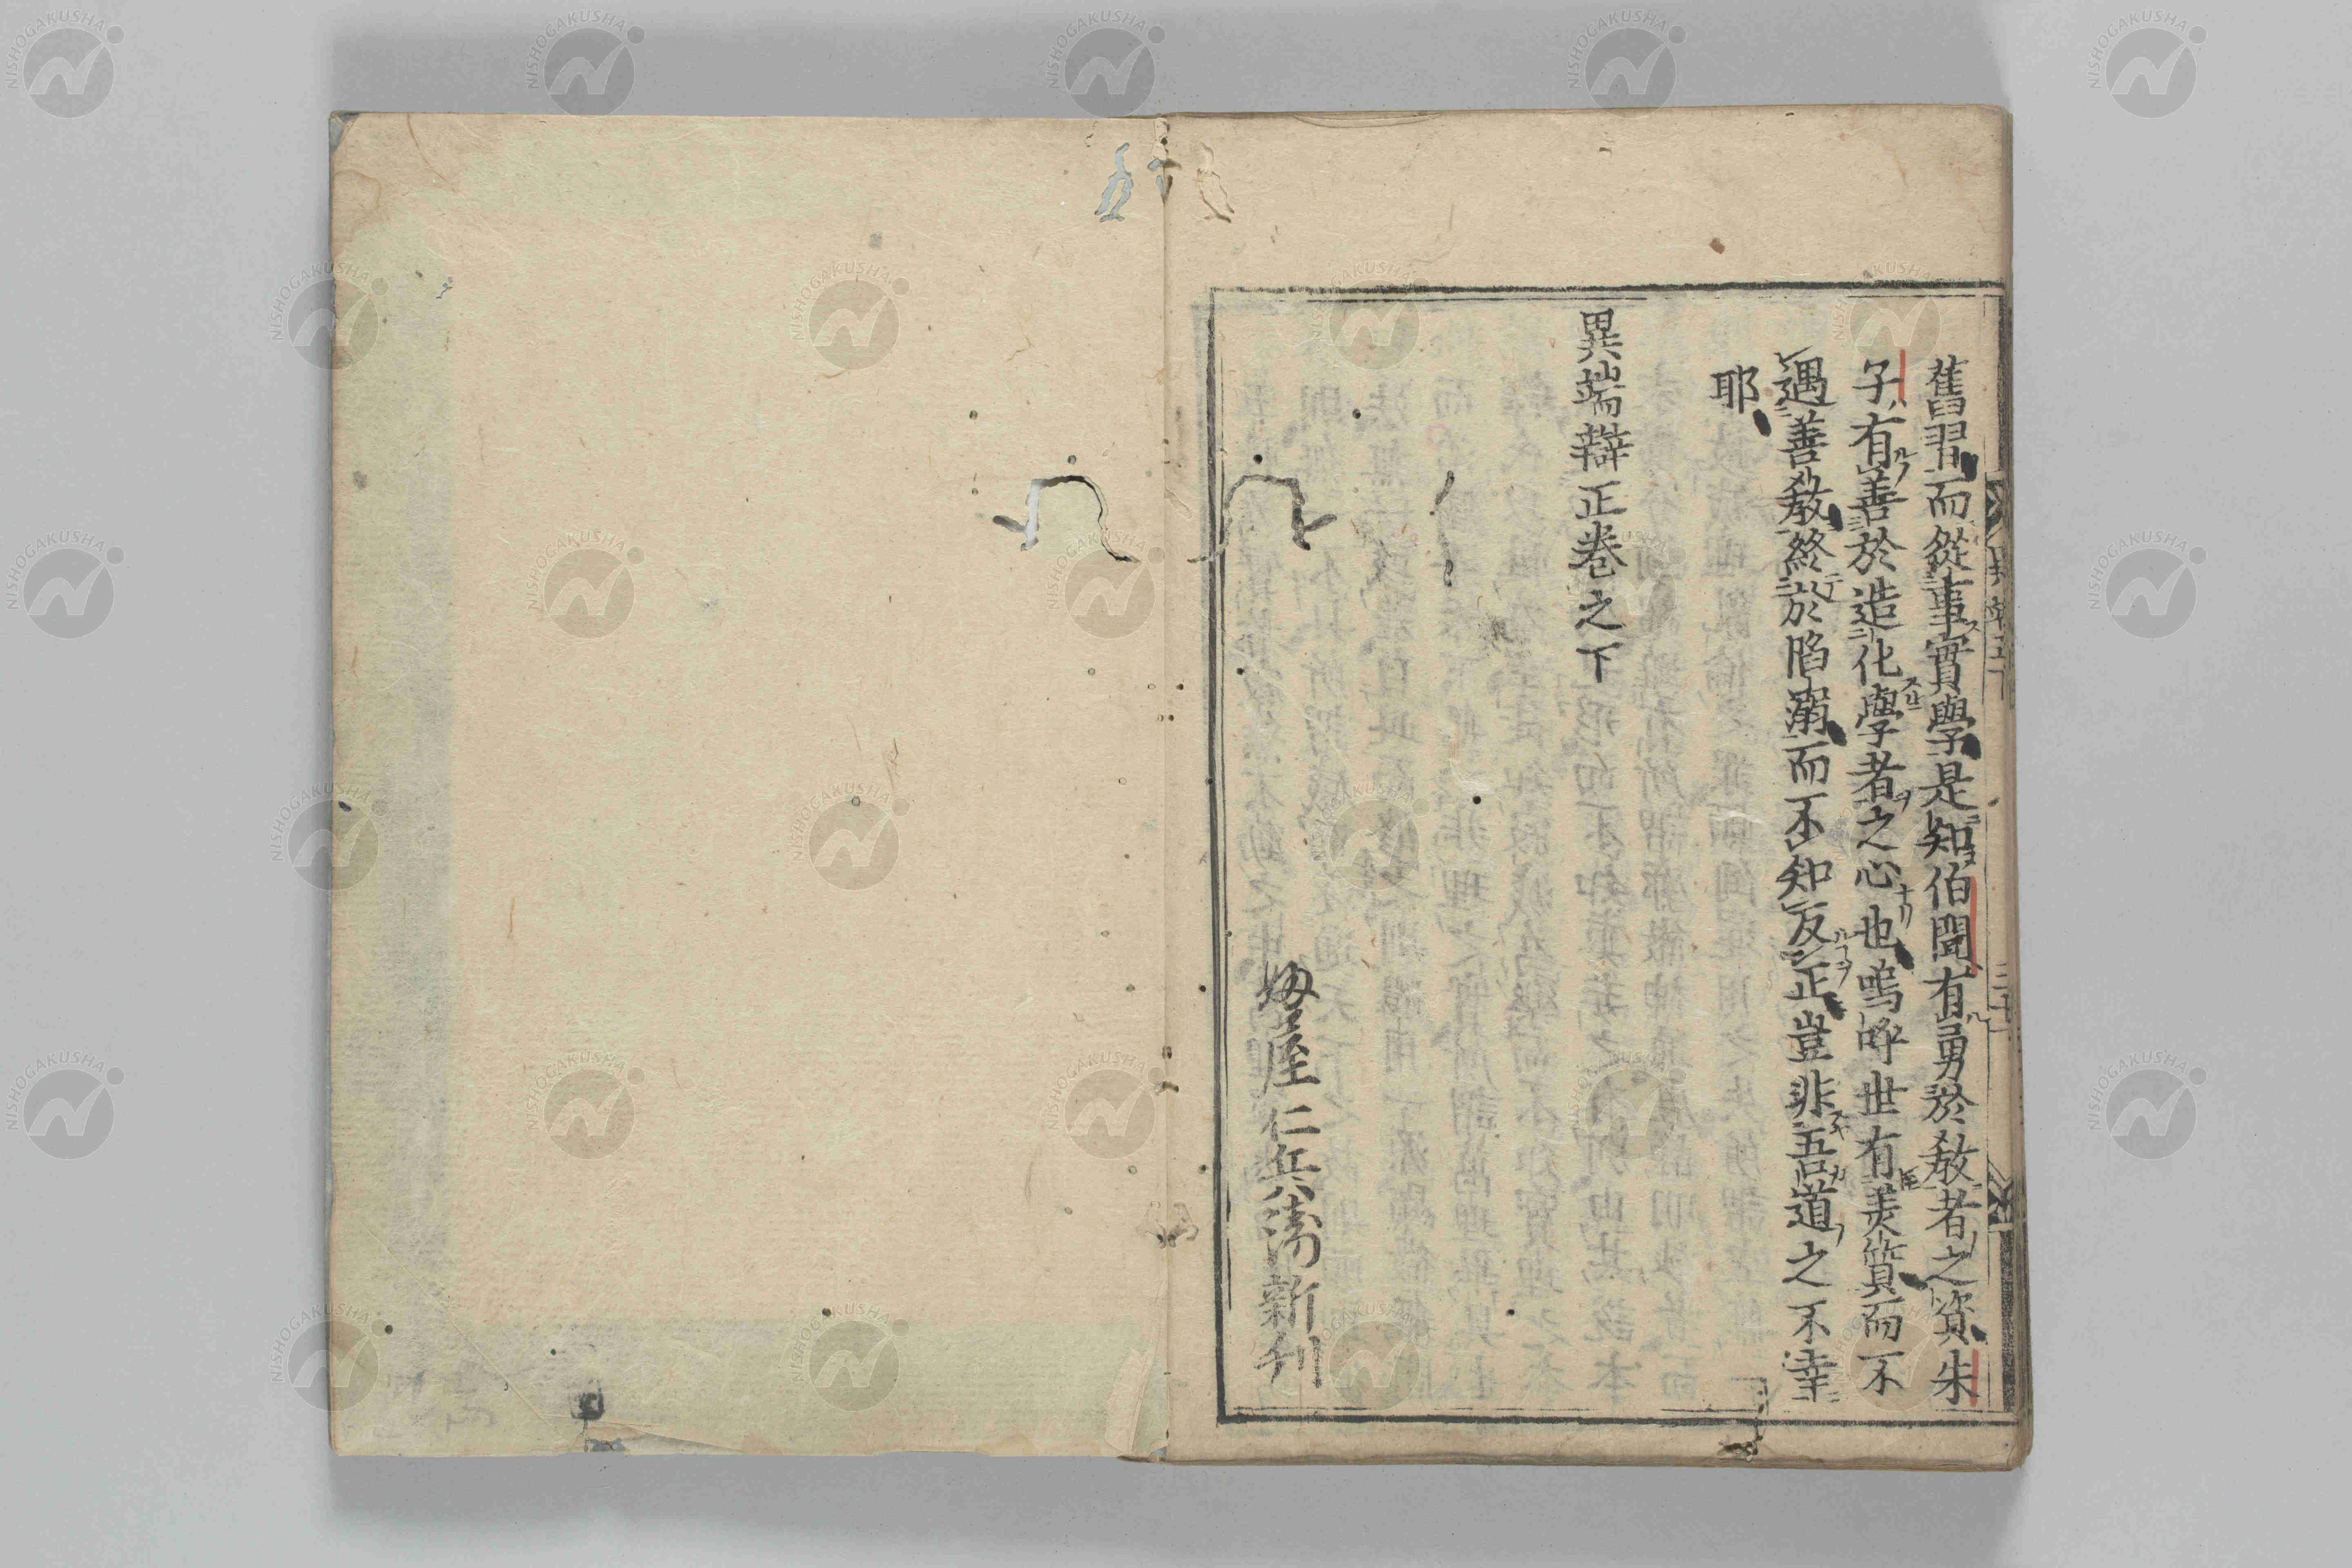 舊習而從事實學是知伯聞有勇於教者之資朱
子有善於造化學者之心也嗚呼世有美質而不
遇善教終於陷溺而不知反正豈非吾道之不幸
耶
異端辯正卷之下
屋仁兵衛新刊
NISHOGAKUSHA